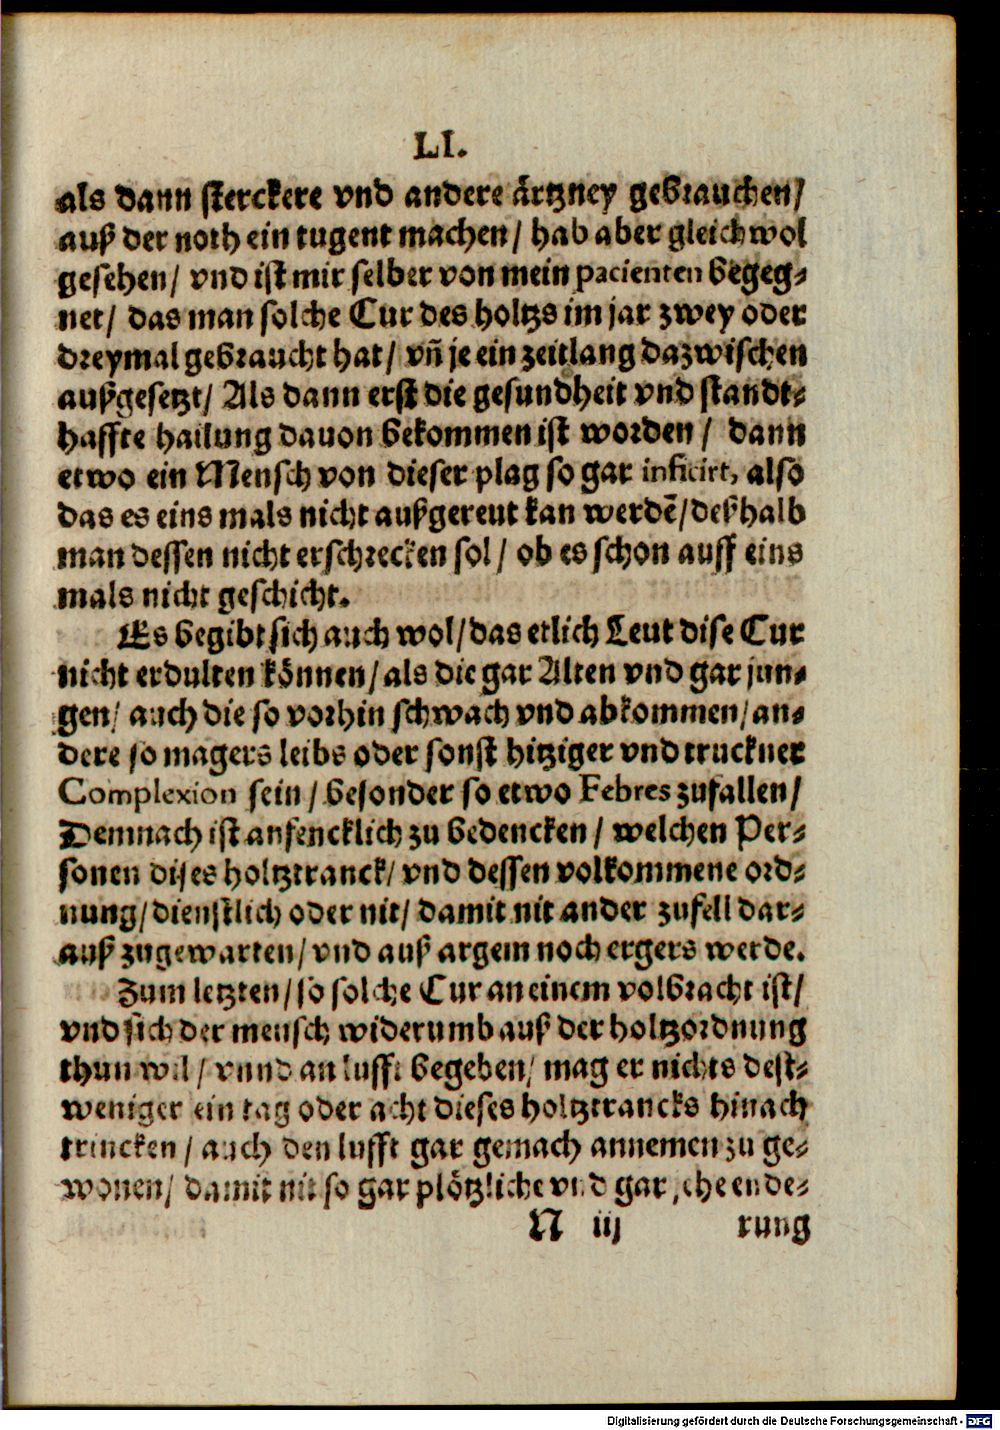 LI.
als dann sterckere vnd andere ärtzney gebrauchen/
auß der noth ein tugent machen/ hab aber gleichwol
gesehen/ vnd ist mir selber von mein pacienten begeg-
net/ das man solche Cur des holtzs im jar zwey oder
dreymal gebraucht hat/ vñ je ein zeitlang dazwischen
außgesetzt/ Als dann erst die gesundheit vnd standt-
haffte hailung dauon bekommen ist worden/ dann
etwo ein Mensch von dieser plag so gar inficirt, also
das es eins mals nicht außgereut kan werdē/deßhalb
man dessen nicht erschrecken sol/ ob es schon auff eins
mals nicht geschicht.
Es begibt sich auch wol/das etlich Leut dise Cur
nicht erdulten können/als die gar Alten vnd gar jun-
gen/ auch die so vorhin schwach vnd abkommen/an-
dere so magers leibs oder sonst hitziger vnd truckner
Complexion sein/ besonder so etwo Febres zufallen/
Demnach ist anfencklich zu bedencken/ welchen Per-
sonen dises holtztranck/ vnd dessen volkommene ord-
nung/dienstlich oder nit/ damit nit ander zufell dar-
auß zugewarten/ vnd auß argem noch ergers werde.
Zum letzten/so solche Cur an einem volbracht ist/
vnd sich der mensch widerumb auß der holtzordnung
thun wil/ vnnd an lufft begeben/ mag er nichts dest-
weniger ein tag oder acht dieses holtztrancks hinach
trincken/ auch den lufft gar gemach annemen zu ge-
wonen/ damit nit so gar plötzliche vnd gar ehe ende-
N iij rung
Digitalisierung gefördert durch die Deutsche Forschungsgemeinschaft - DFG